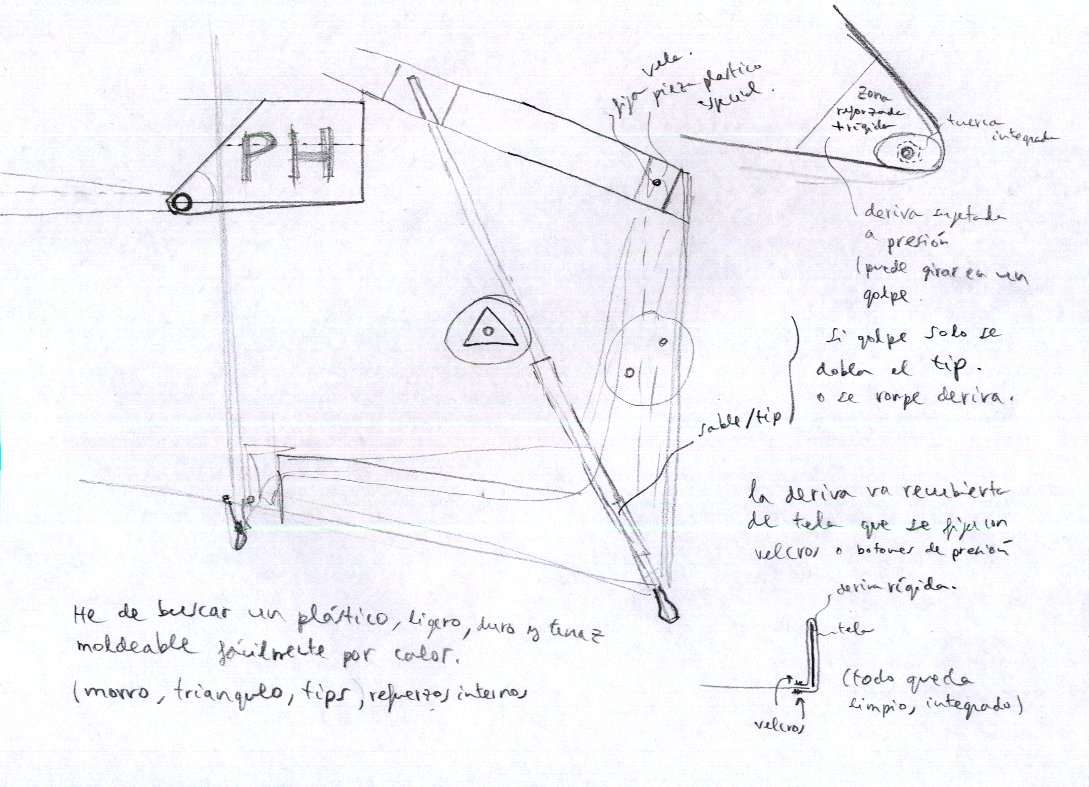 vela.
fija pieza plastico
especial.
PH
Zona
reforzada
+ rígida
tuerca
integrada
deriva sujetada
a presión
(puede girar en un
golpe.
Si golpe solo se
dobla el tip.
o se rompe deriva.
sable/tip
la deriva va recubierta
de tela que se fija con
velcros o botones de presión
deriva rígida.
tela
(todo queda
limpio, integrado)
velcros
He de buscar un plástico, ligero, duro y tenaz
moldeable fácilmente por calor.
(morro, triangulo, tips), refuerzos internos